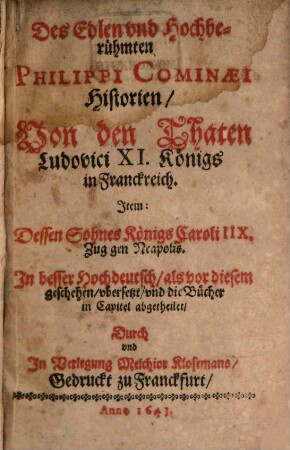 Des Edlen vnd Hochbe-
rühmten
PHILIPPI COMINÆI
Historien/
Von den Thaten
Ludovici XI. Königs
in Franckreich.
Item:
Dessen Sohnes Königs Caroli IIX.
Zug gen Neapolis.
In besser Hochdeutsch/als vor diesem
geschehen/vbersetzt/vnd die Bücher
in Capitel abgetheilet/
Durch
vnd
In Verlegung Melchior Klosemans/
Gedruckt zu Franckfurt/
Anno 1643.